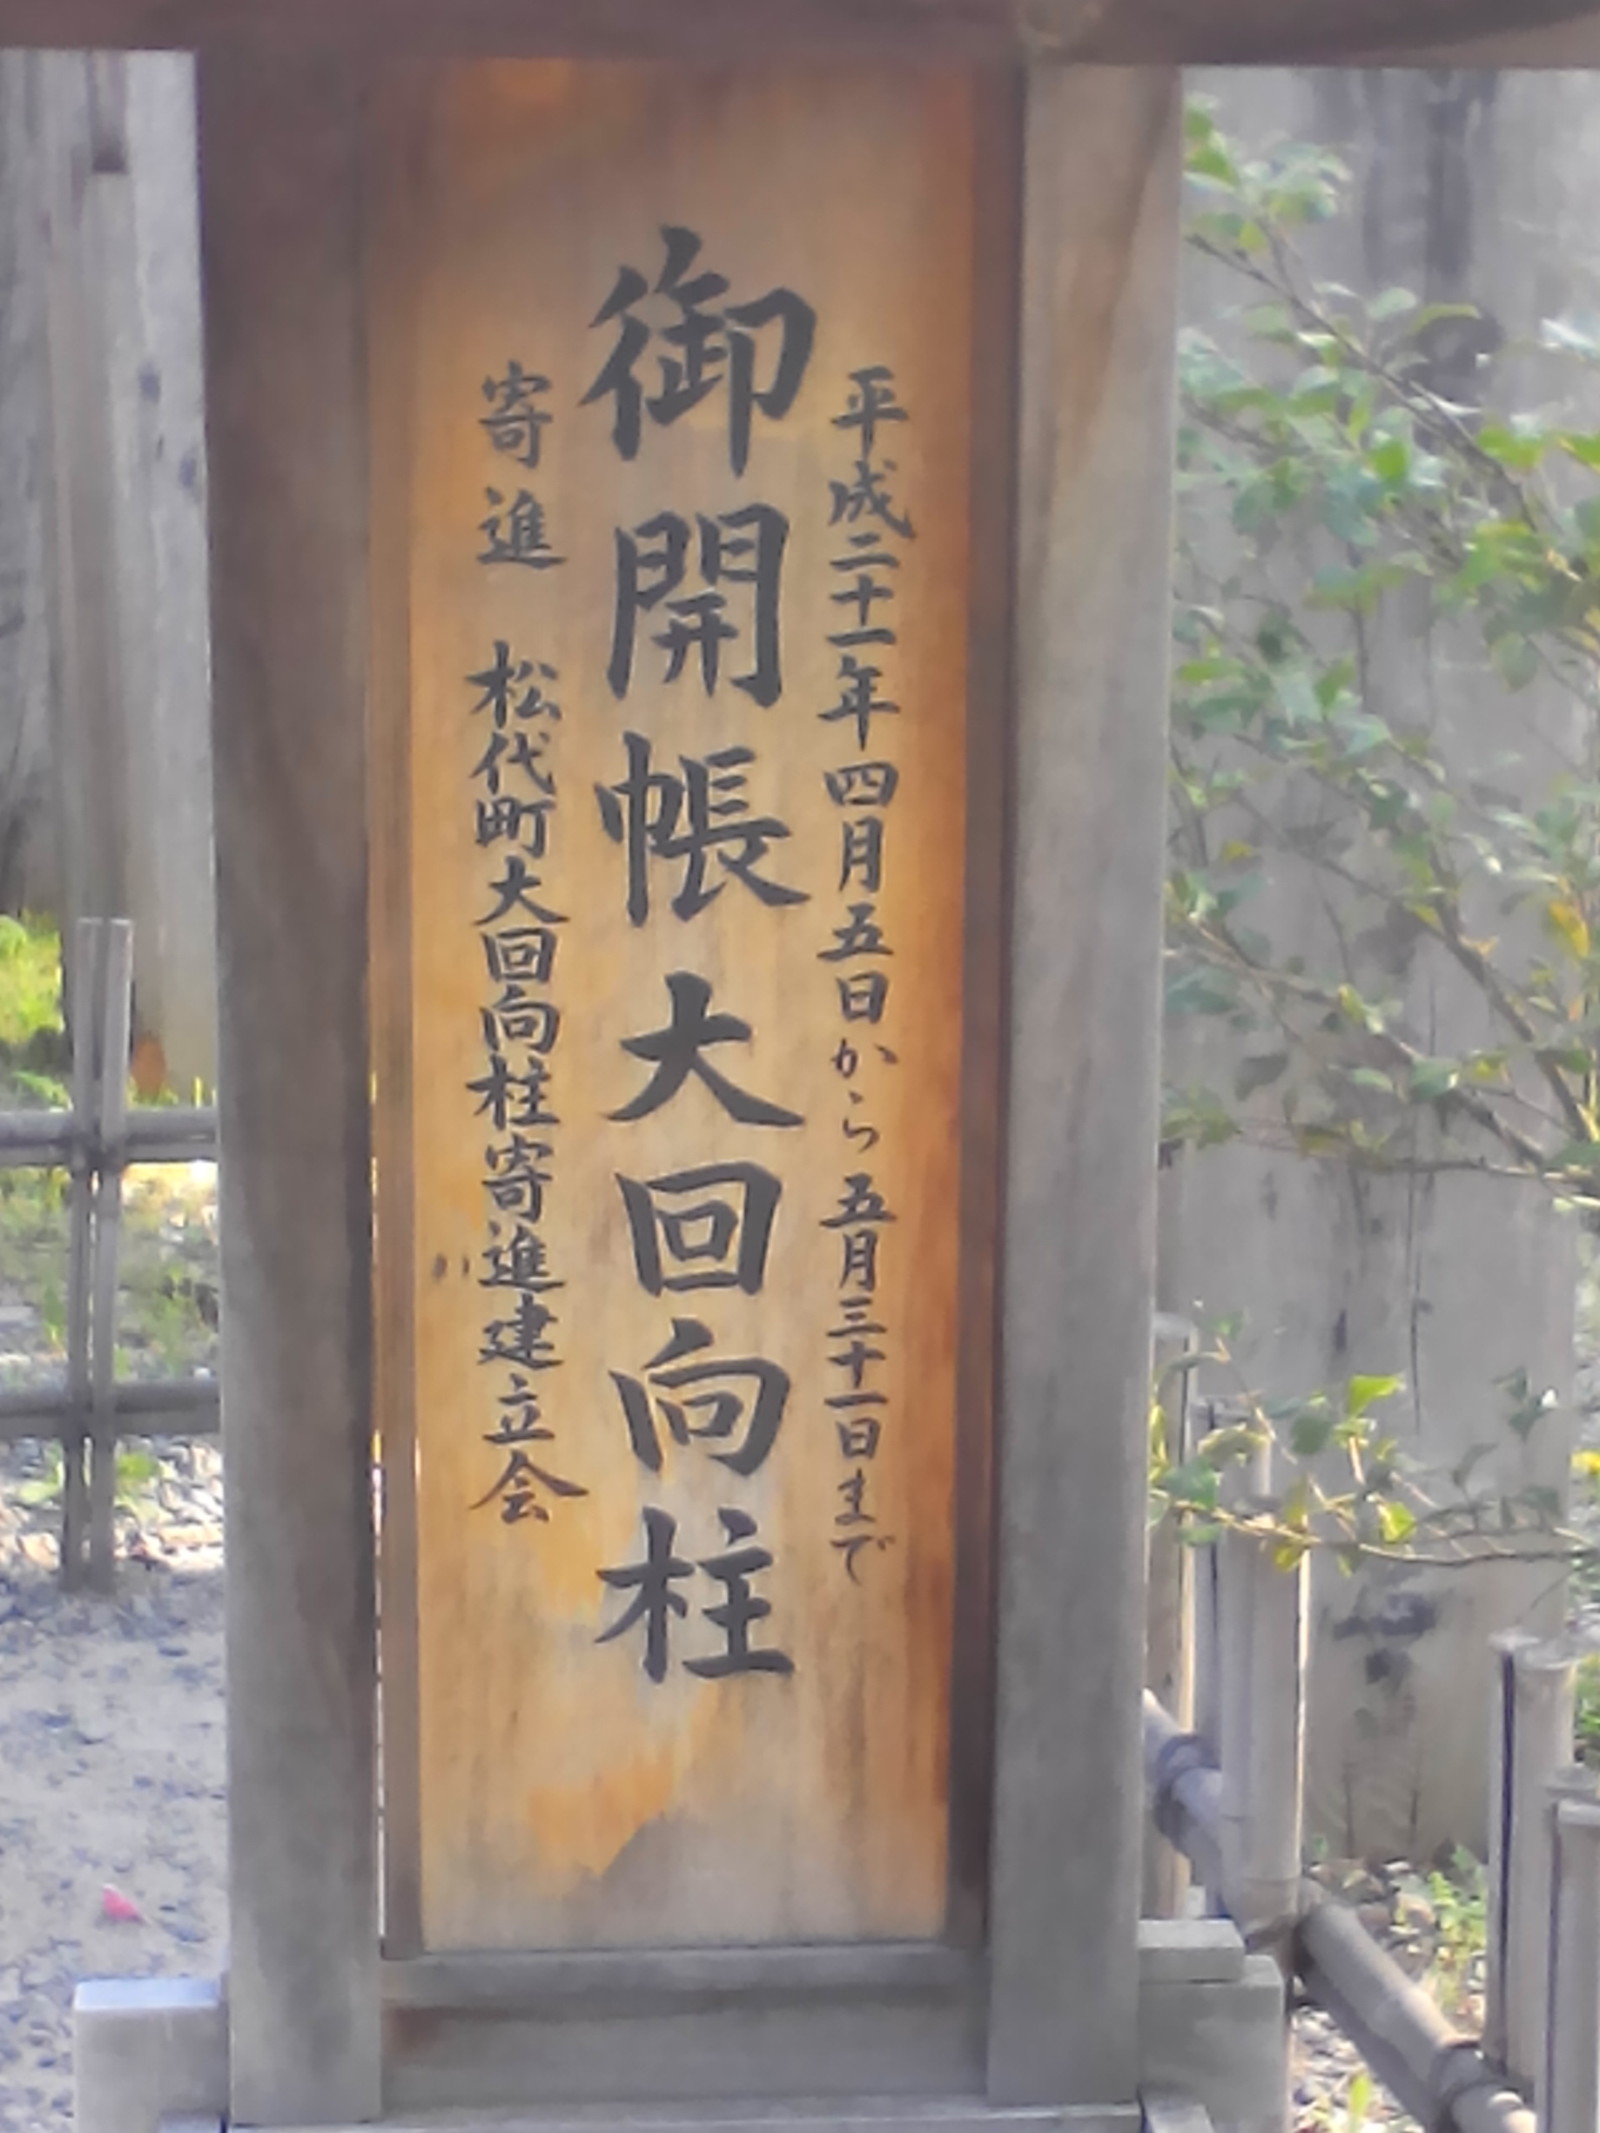 平成二十一年四月五日から五月三十一日まで
御開帳大回向柱
寄進 松代町大回向柱寄進建立会